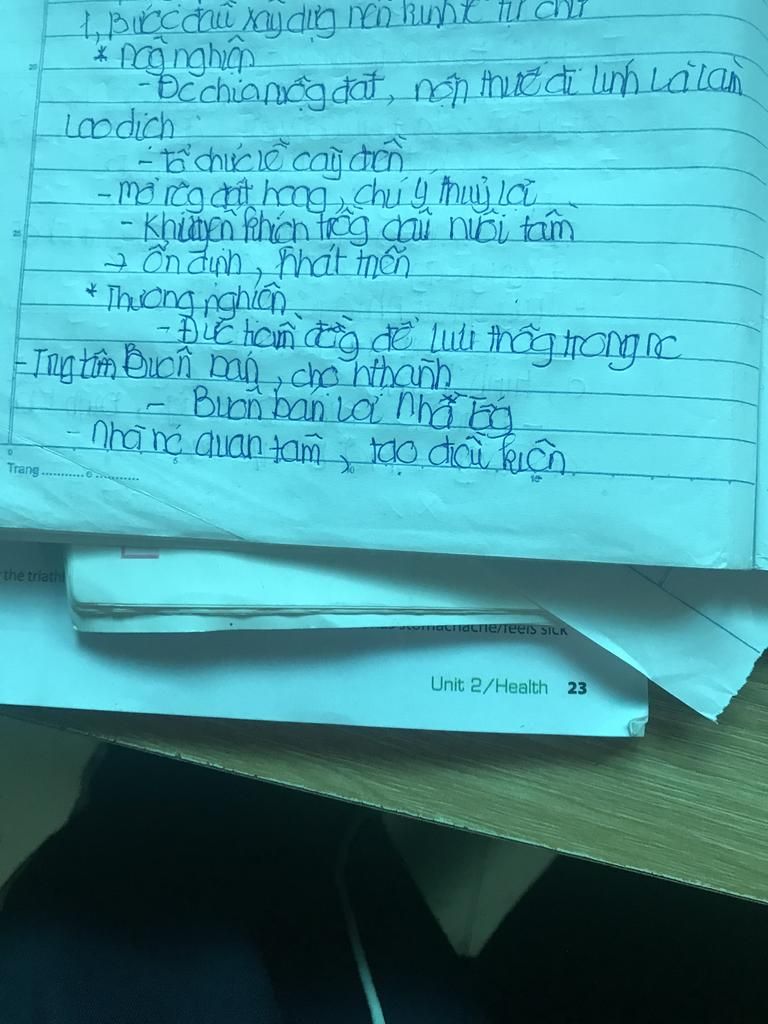 1, Bước đầu xây dựng nền kinh tế tự chủ
* Nông nghiệp
- Đc chia ruộng đất, nộp thuế đi lính và làm
lao dịch
- tổ chức lễ cày điền
- mở rộg đất hoag, chú ý thuỷ lợi
- Khuyến khích trồg dâu nuôi tằm
→ Ổn định, phát triển
* Thương nghiệp
- Đúc tiền đồg để lưu thôg trong nc
- Trug tâm Buôn bán, chợ hthành
- Buôn bán với nhà Tốg
- Nhà nc quan tâm, tạo điều kiện
Trang
the triath
stomachache/feels sick
Unit 2/Health 23